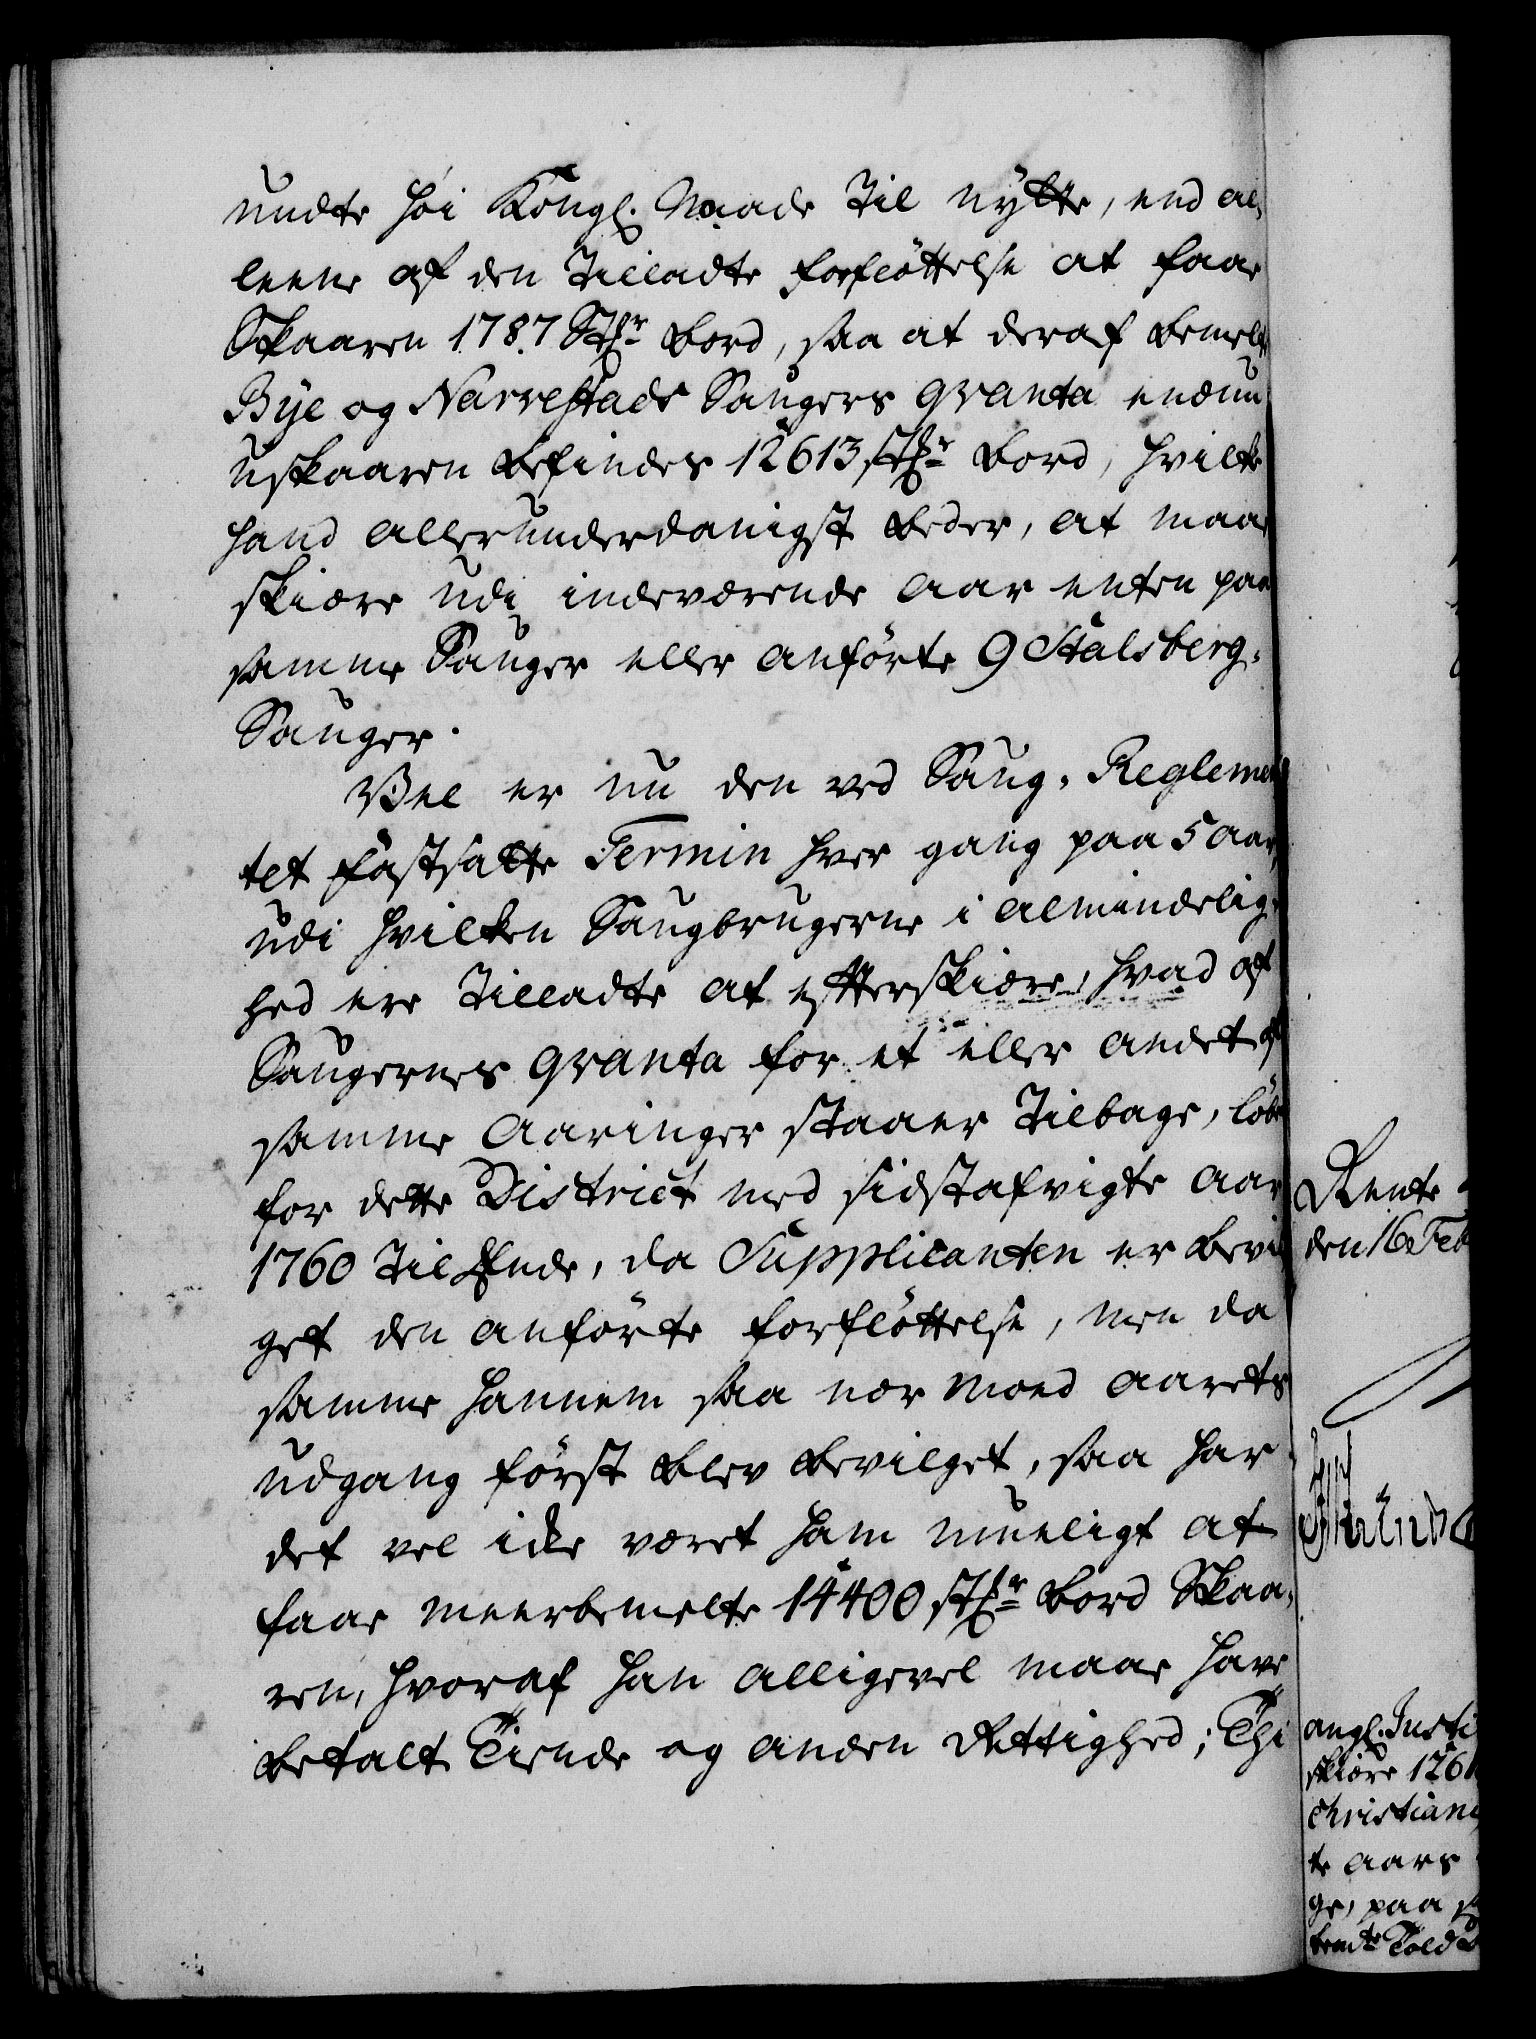 undte høi Kongl. Naade til nytte, end al,
leene af den tilladte forflöttelse at faae
Skaaren 1787 Stkr Bord, saa at deraf bemelte
Bye og Narrestads Saugers qvanta endnu
uskaaren befindes 12613 stkr Bord, hvilke
hand allerunderdanigst beder, at maae
skiære udi indeværende Aar enten paa
samme Sauger eller anförte 9 Stalsberg,
Sauger.
Vel er nu den ved Saug, Reglemen
tet fastsatte Termin hver gang paa 5 Aar,
udi hvilken Saugbrugerne i almindelig,
hed ere tilladte at efterskiære, hvad af
Saugernes qvanta for et eller andet af
samme Aaringer staaer tilbage, löbe
for dette District med sidstafvigte Aar
1760 til Ende, da Supplicanten er bevil
get den anförte forflöttelse, men da
samme hannem saa nær moed Aarets
udgang först blev bevilget, saa har
det vel icke været ham mueligt at
faae meerbemelte 14400 stkr Bord Skaa,
ren, hvoraf han alligevel maae have
betalt Tiende og anden Rettighed; Thi
Rente
den 16 Feb
angl. Justi
skiære 1261
Christiani
te Aars
ge, paa
Told